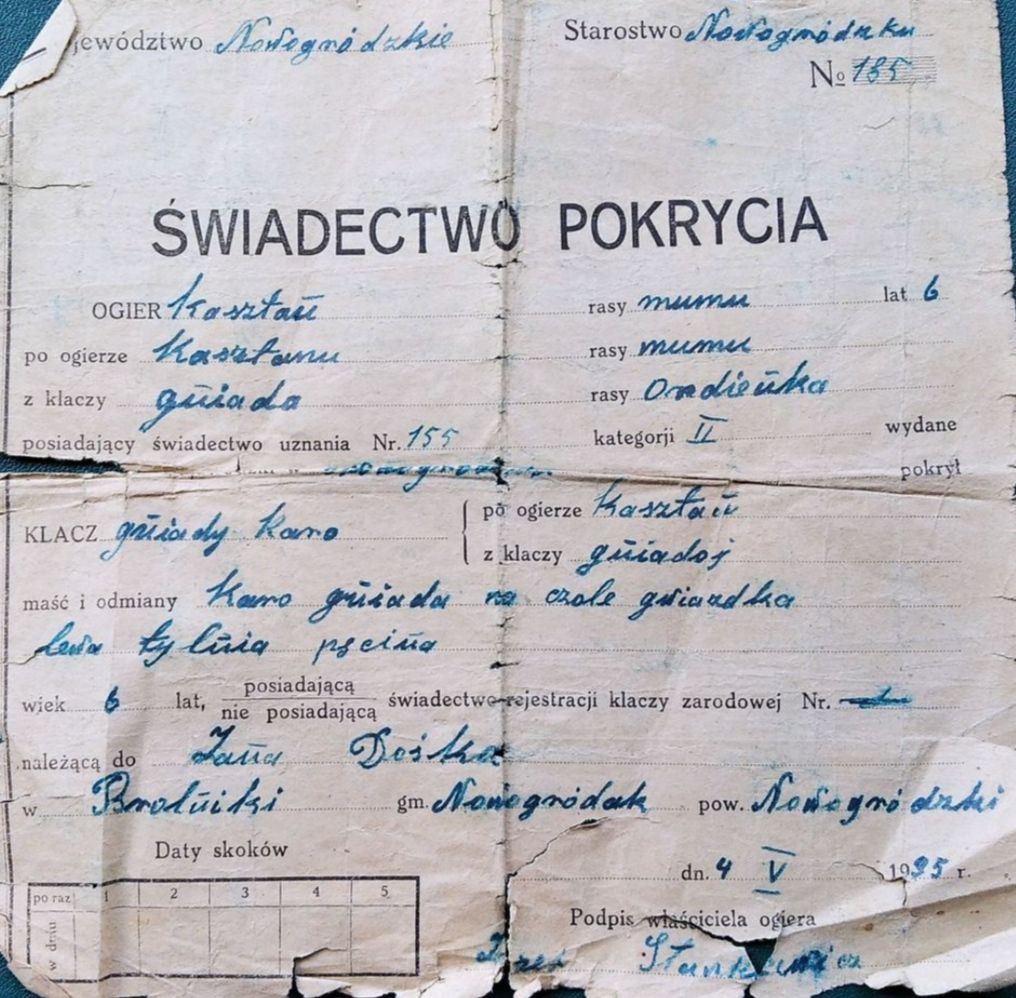 jewództwo Nowogródzkie Starostwo Nowogródzku
№ 185
ŚWIADECTWO POKRYCIA
OGIER Kasztań rasy mumu lat 6
po ogierze Kasztanu rasy mumu
z klaczy gniada rasy Ordieńka
posiadający świadectwo uznania Nr. 155 kategorji II wydane
pokrył
KLACZ gniady karo po ogierze Kasztań
z klaczy gniadoj
maść i odmiany Karo gniada na czole gwiazdka
lewa tylnia pęcina
wiek 6 lat, posiadającą nie posiadającą świadectwo rejestracji klaczy zarodowej Nr.
należącą do Jana Dośka
w gm. Nowogródek pow. Nowogródzki
Daty skoków
dn. 4 V 1935 r.
po raz 1 2 3 4 5
w dniu
Podpis właściciela ogiera
Stankiewicz